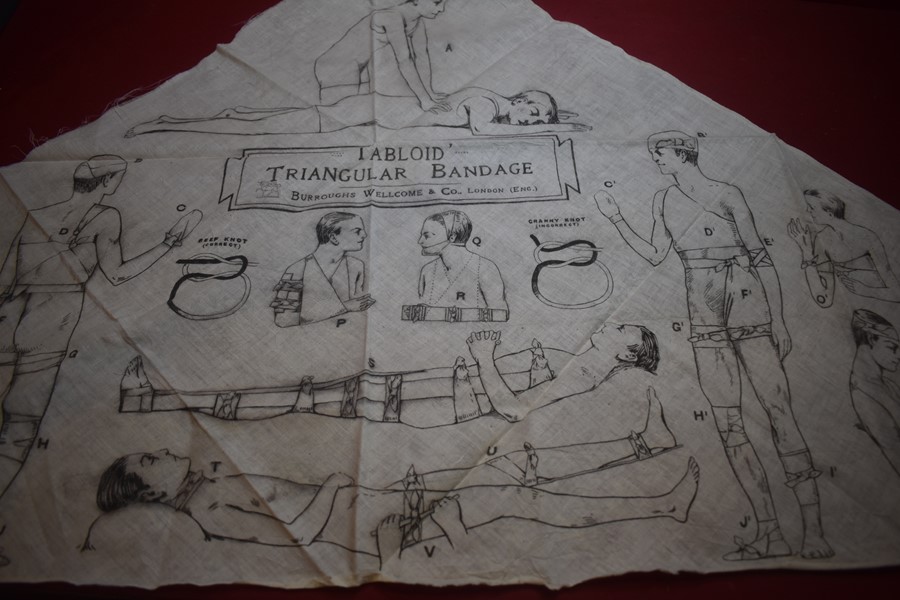 A
'TABLOID'
TRIANGULAR BANDAGE
BURROUGHS WELLCOME & CO., LONDON (ENG.)
B'
C
C'
D
D'
E'
REEF KNOT
(CORRECT)
GRANNY KNOT
(INCORRECT)
Q
R
P
O
F
F'
G
G'
S
H
H'
T
U
I'
J
J'
V